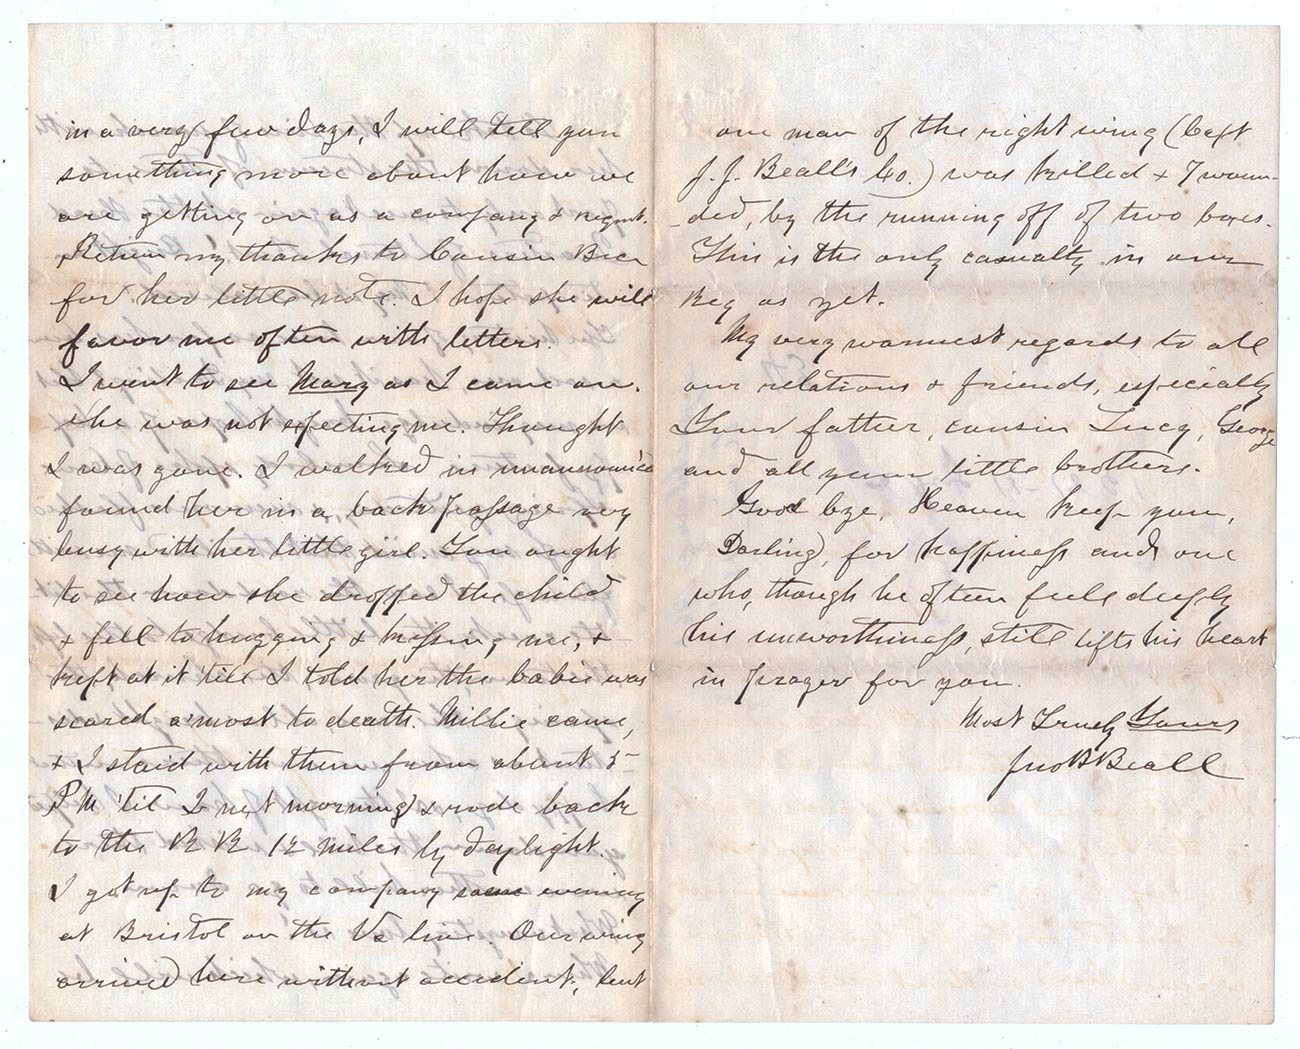 in a very few days, I will tell you
something more about how we
are getting on as a company & regmt.
Return my thanks to Cousin Bec
for her little note. I hope she will
favor me often with letters.
I went to see Mary as I came on.
She was not expecting me. Thought
I was gone. I walked in unannounced
found her in a back passage very
busy with her little girl. You ought
to see how she dropped the child
& fell to hugging & kissing me, &
kept at it 'till I told her the babie was
scared a'most to death. Millie came,
& I staid with them from about 5
P M 'til 2 next morning & rode back
to the R R 12 miles by daylight.
I got up to my company same evening
at Bristol on the Va line. Our wing
arrived here without accident, but
one man of the right wing (Capt
J. J. Beall's Co.) was killed & 7 woun-
-ded, by the running off of two boxes.
This is the only casualty in our
Reg as yet.
My very warmest regards to all
our relations & friends, especially
Your father, cousin Lucy, George
and all your little brothers.
Good bye, Heaven keep you,
Darling, for happiness and one
who, though he often feels deeply
his unworthiness, still lifts his heart
in prayer for you.
Most Truly Yours
Jno B Beall